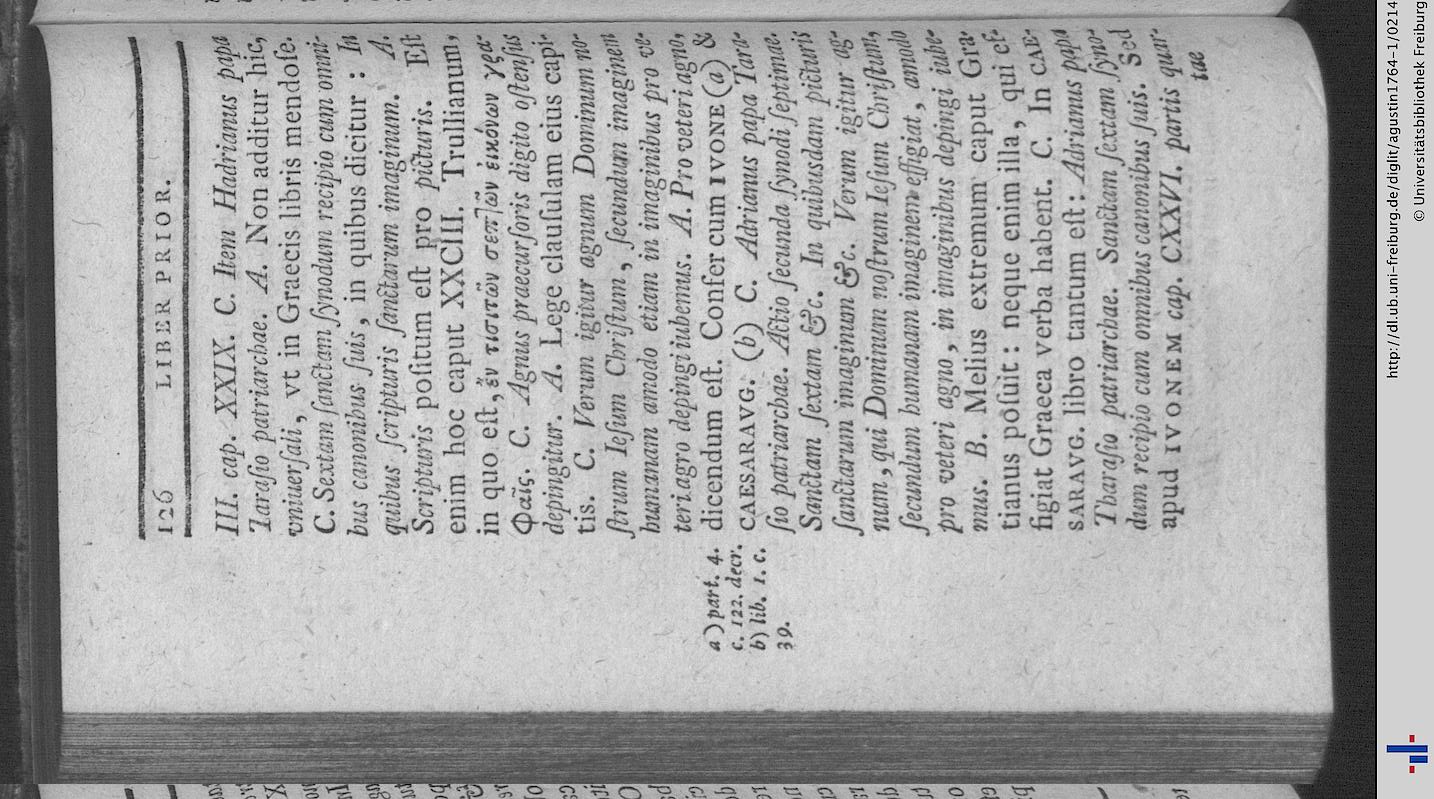 126 LIBER PRIOR.
III. cap. XXIX. C. Item Hadrianus papa
Taraſio patriarchae. A. Non additur hic,
vniuerſali, vt in Graecis libris mendoſe.
C. Sextam ſanctam ſynodum recipio cum omni-
bus canonibus ſuis, in quibus dicitur: In
quibus ſcripturis ſanctarum imaginum. A.
Scripturis poſitum eſt pro picturis. Eſt
enim hoc caput XXCIII. Trullianum,
in quo eſt, ἔν τισι τῶν σεπτῶν εἰκόνων γρα-
φαῖς. C. Agnus praecurſoris digito oſtenſus
depingitur. A. Lege clauſulam eius capi-
tis. C. Verum igitur agnum Dominum no-
ſtrum Ieſum Chriſtum, ſecundum imaginem
humanam amodo etiam in imaginibus pro ve-
teri agro depingi iubemus. A. Pro veteri agno,
dicendum eſt. Confer cum IVONE (a) &
CAESARAVG. (b) C. Adrianus papa Tara-
ſio patriarchae. Actio ſecunda ſynodi ſeptimae.
Sanctam ſextam &c. In quibusdam picturis
ſanctarum imaginum &c. Verum igitur ag-
num, qui Dominum noſtrum Ieſum Chriſtum,
ſecundum humanam imaginem effigiat, amodo
pro veteri agno, in imaginibus depingi iube-
mus. B. Melius extremum caput Gra-
tianus poſuit: neque enim illa, qui ef-
figiat Graeca verba habent. C. In CAE-
SARAVG. libro tantum eſt: Adrianus papa
Tharaſio patriarchae. Sanctam ſextam ſyno-
dum recipio cum omnibus canonibus ſuis. Sed
apud IVONEM cap. CXXVI. partis quar-
tae
a) part. 4.
c. 122. decr.
b) lib. 1. c.
39.
http://dl.ub.uni-freiburg.de/diglit/agustin1764-1/0214
© Universitätsbibliothek Freiburg